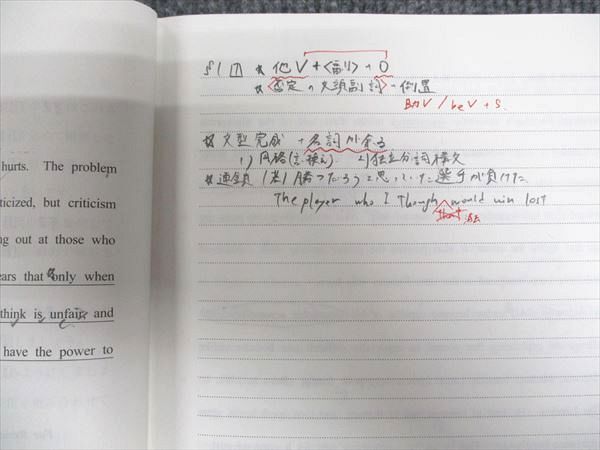 hurts. The problem
ticized, but criticism
ng out at those who
ears that only when
think is unfair and
have the power to
§1 ⑦ * 他V+<副>+O
* <否定の文頭副詞>→倒置
助V/beV+S.
* 文型完成+名詞が余る
1) 同格(言換え) 2) 独立分詞構文
* 連鎖 (英) 勝つだろうと思っていた選手が負けた
The player who I though would win lost
that